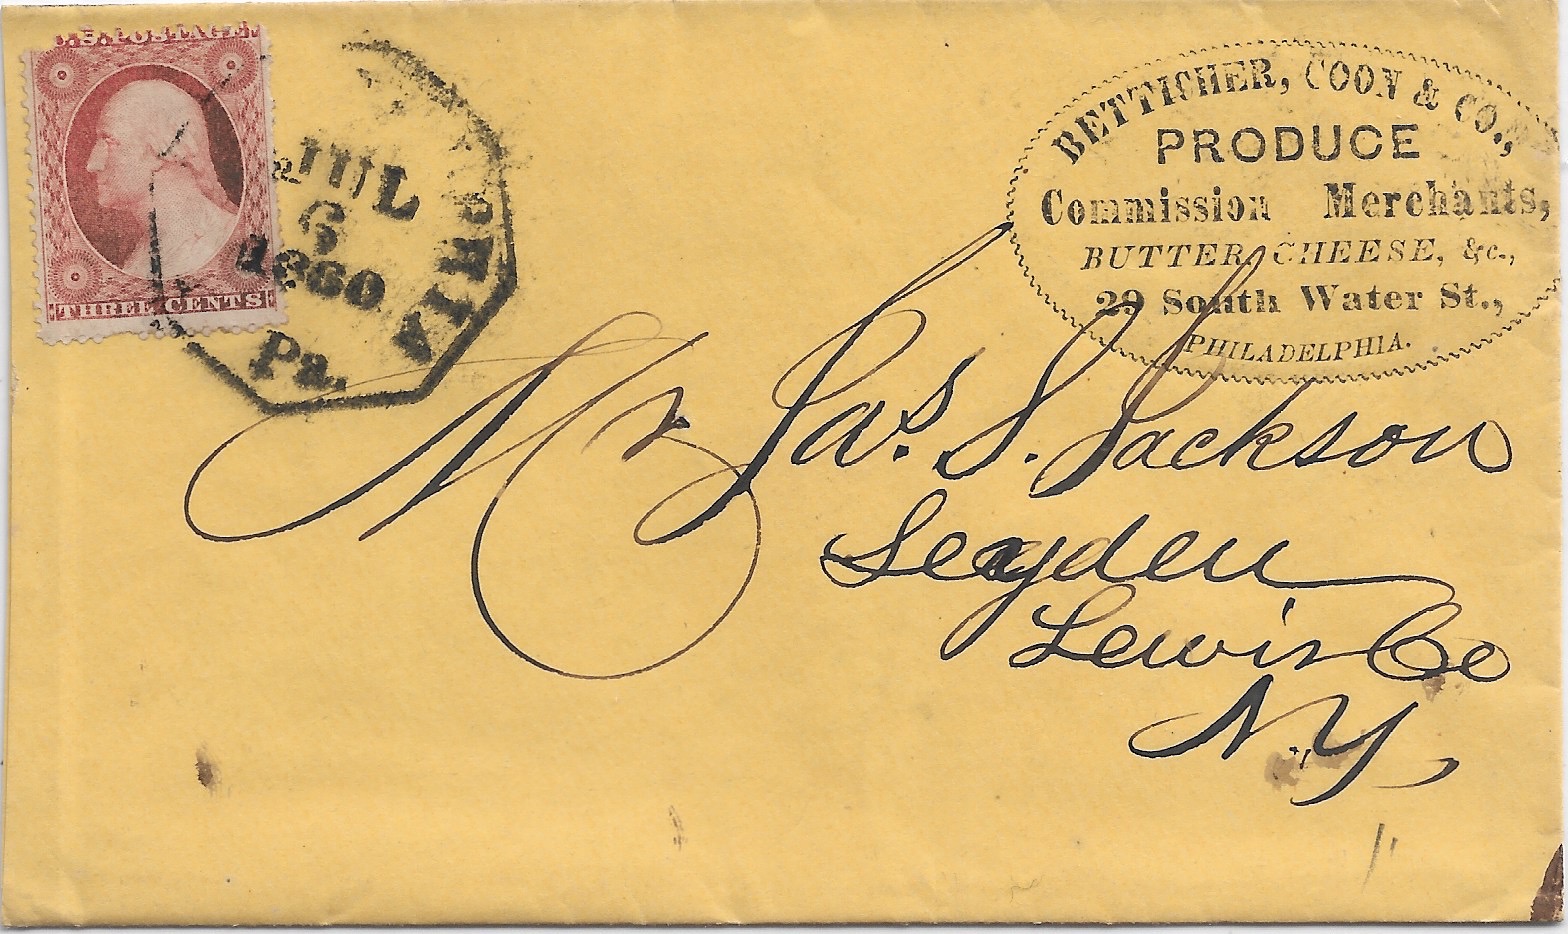 U.S. POSTAGE.
THREE CENTS
JUL
6
1860
Pa.
BETTICHER, COON & CO.,
PRODUCE
Commission Merchants,
BUTTER, CHEESE, &c.,
29 South Water St.,
PHILADELPHIA.
Mr Jas. S. Jackson
Leyden
Lewis Co
N.Y,